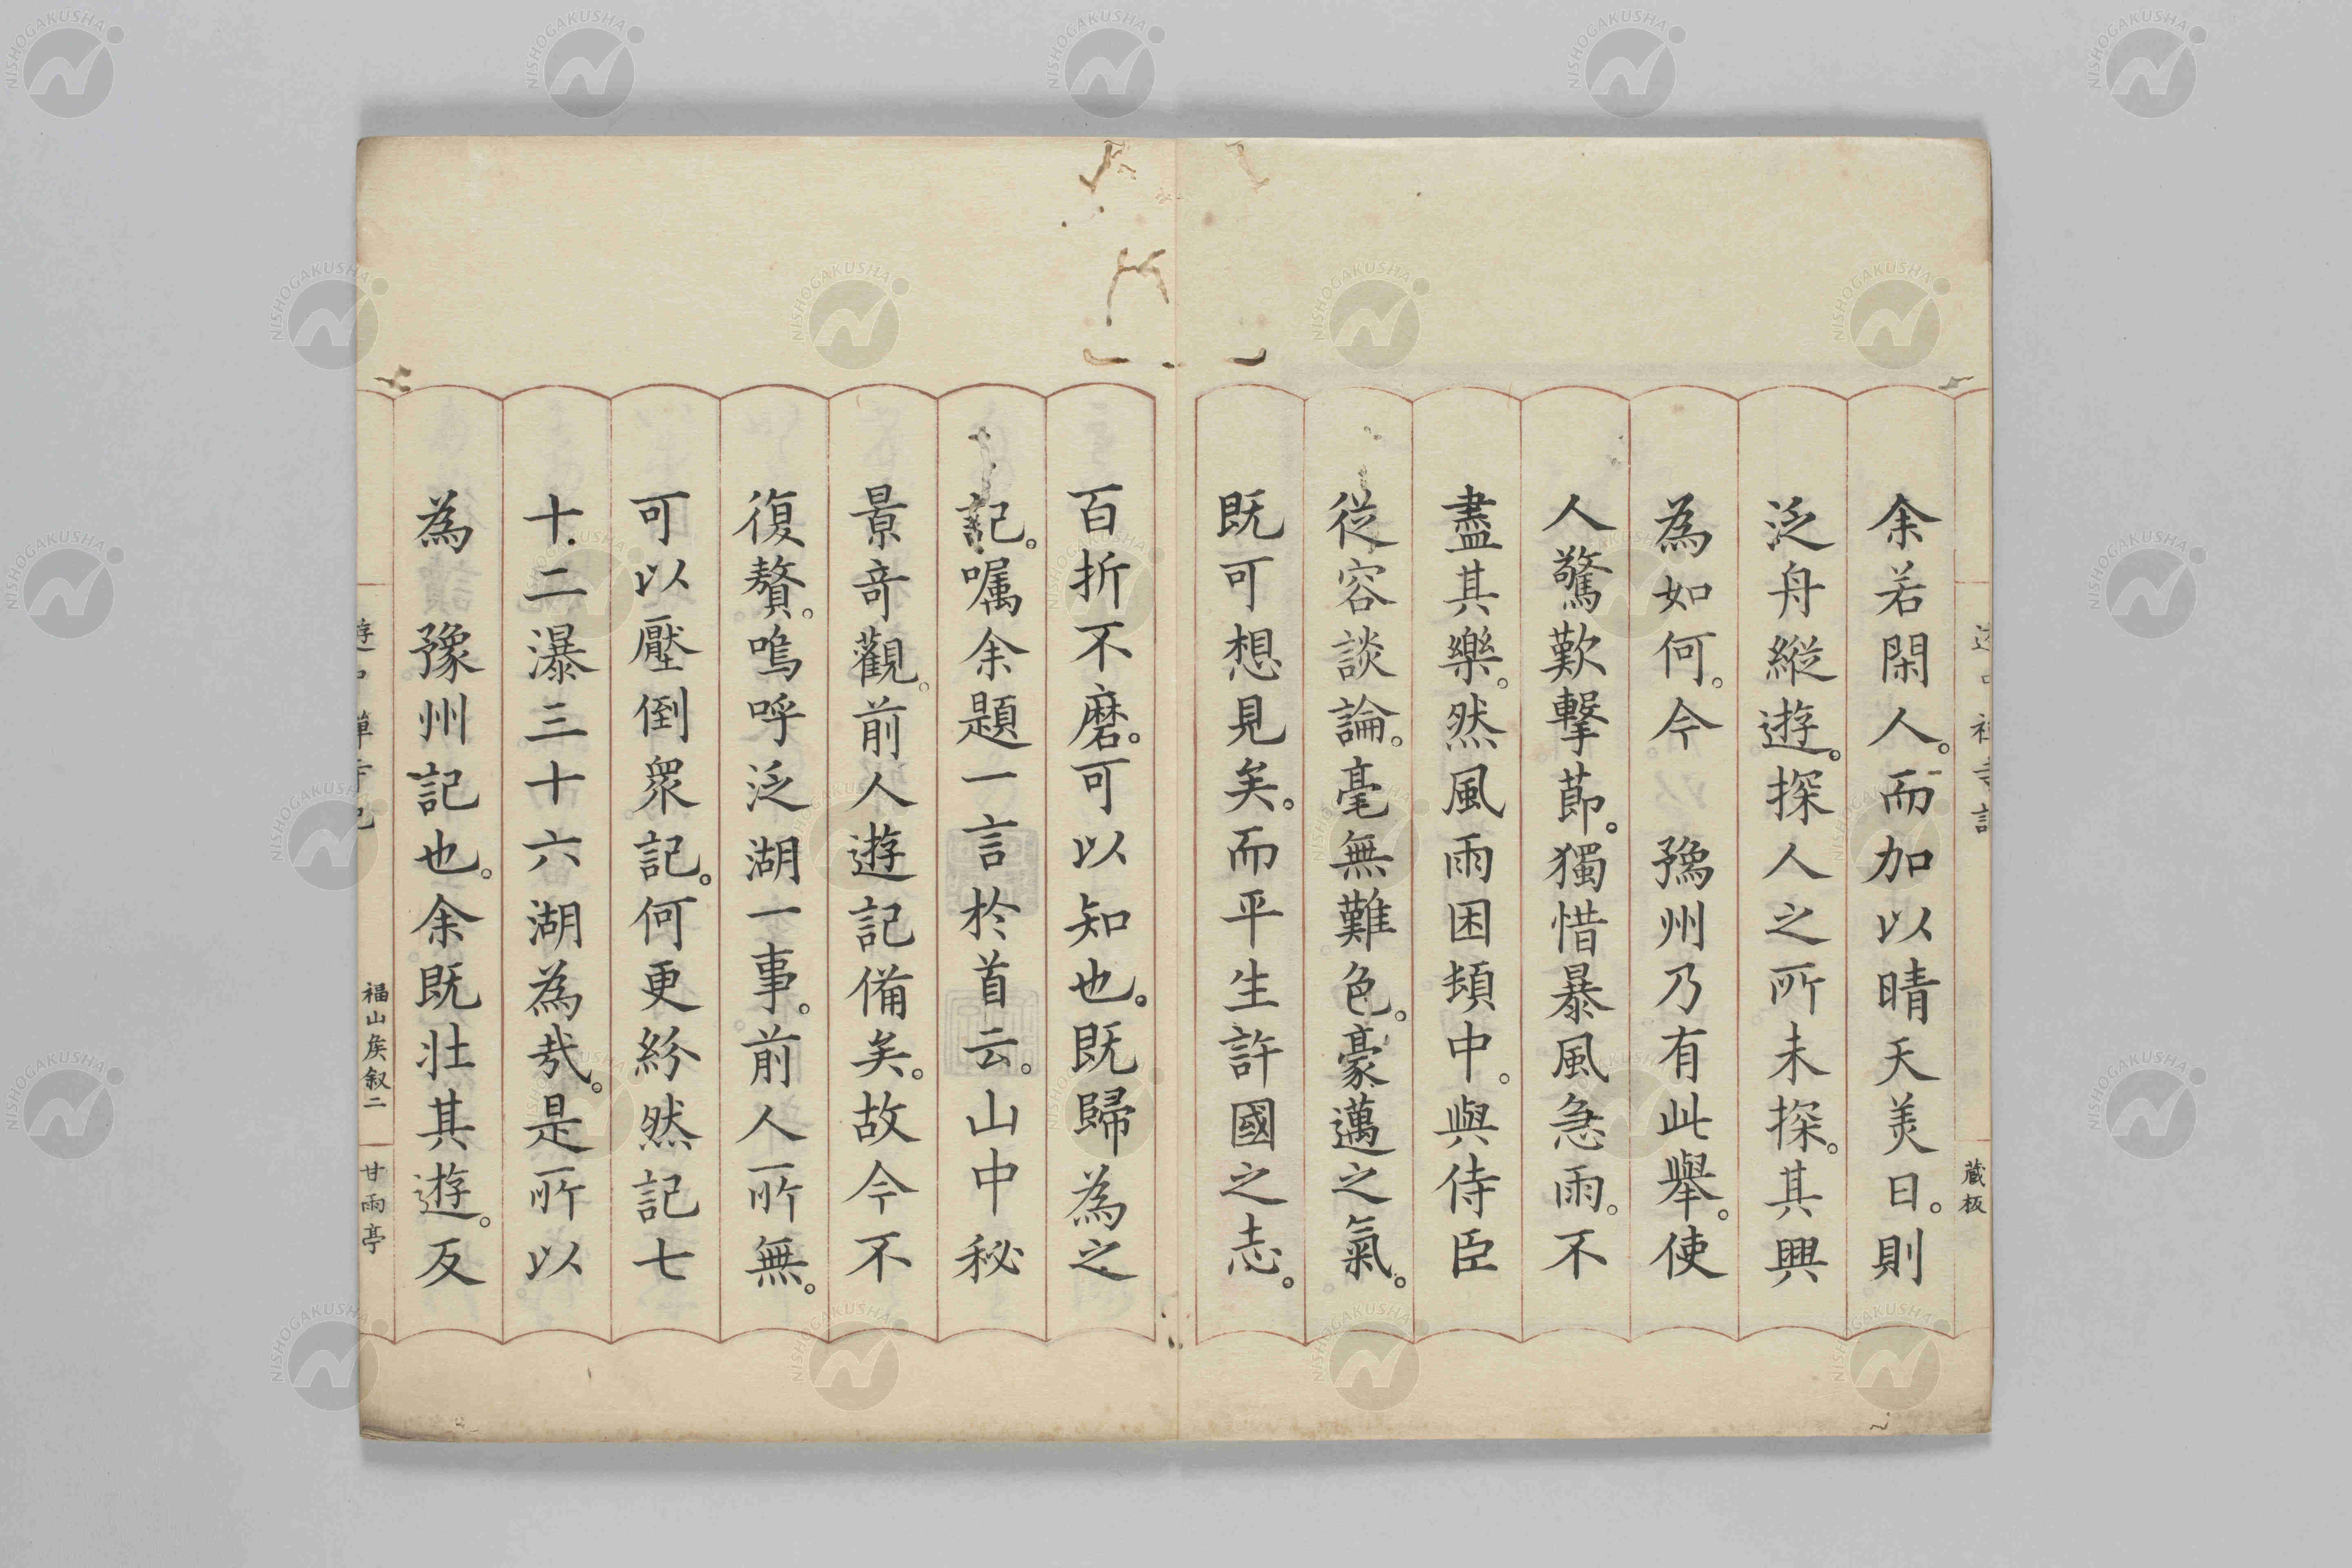 余若閑人。而加以晴天美日。則
泛舟縱遊。探人之所未探。其興
為如何。今 豫州乃有此舉。使
人驚歎擊節。獨惜暴風急雨。不
盡其樂。然風雨困頓中。與侍臣
從容談論。毫無難色。豪邁之氣。
既可想見矣。而平生許國之志。
百折不磨。可以知也。既歸為之
記。嘱余題一言於首云。山中秘
景奇觀。前人遊記備矣。故今不
復贅。嗚呼泛湖一事。前人所無。
可以壓倒衆記。何更紛然記七
十二瀑三十六湖為哉。是所以
為 豫州記也。余既壮其遊。反
福山矦叙二
甘雨亭
蔵板
NISHOGAKUSHA